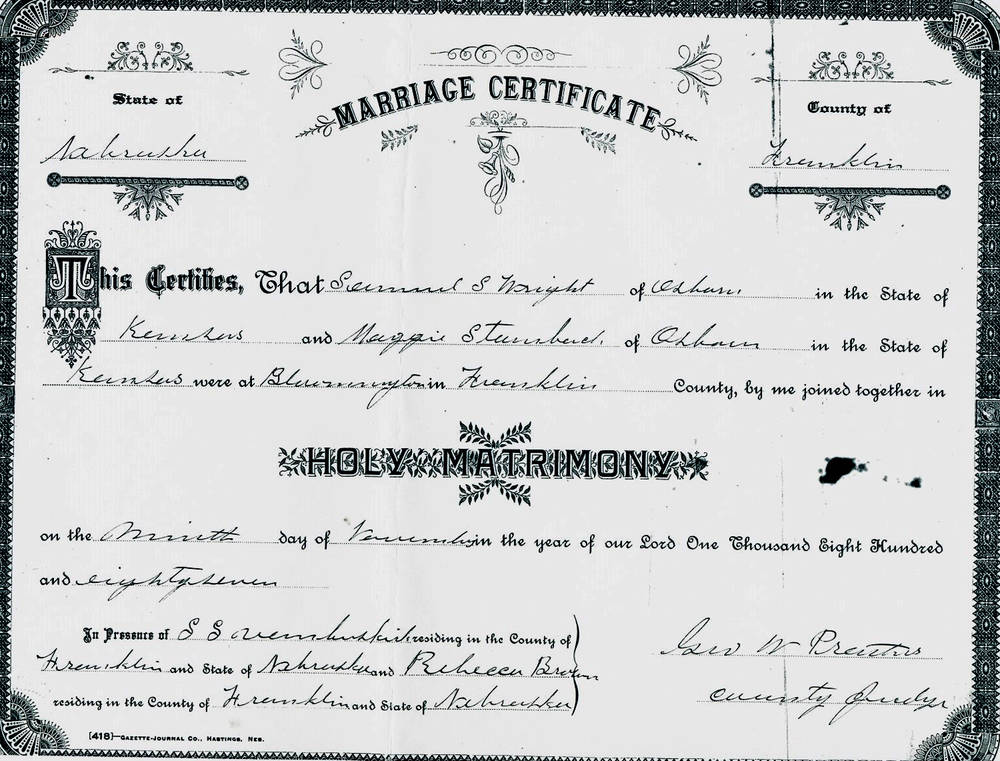 MARRIAGE CERTIFICATE
State of
Nebraska
County of
Franklin
This Certifies, That Samuel S Wright of Osborn in the State of
Kansas and Maggie of Osborn in the State of
Kansas were at Bloomington in Franklin County, by me joined together in
HOLY MATRIMONY
on the Nineth day of November in the year of our Lord One Thousand Eight Hundred
and eighty seven
In Presence of S S residing in the County of
Franklin and State of Nebraska and Rebecca Brown
residing in the County of Franklin and State of Nebraska
Geo W
County Judge
[418]—GAZETTE-JOURNAL CO., HASTINGS, NEB.